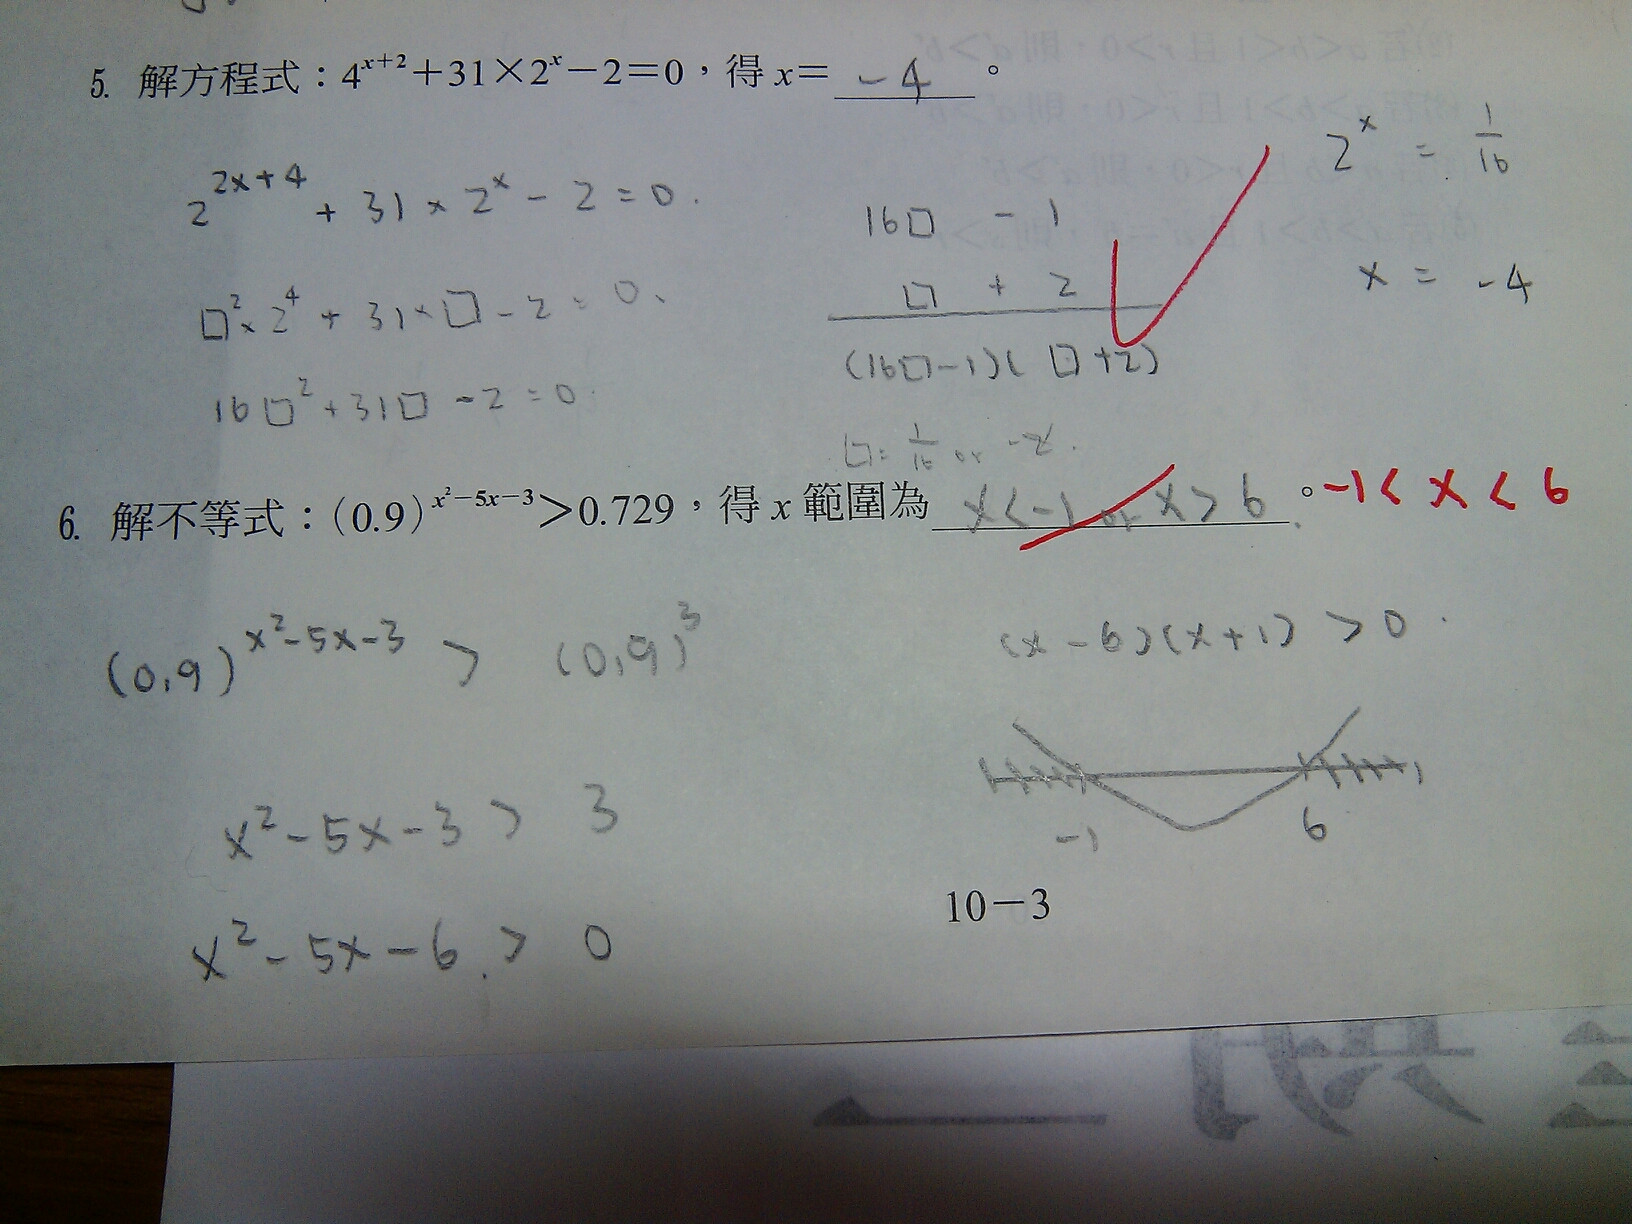 5. 解方程式：4^{x+2}+31×2^x−2=0，得 x= -4 。
2^{2x+4} + 31 × 2^x - 2 = 0.
□^2 × 2^4 + 31 × □ - 2 = 0.
16□^2 + 31□ - 2 = 0.
16□ - 1
□ + 2
(16□-1)( □+2)
□ = 1/16 or -2.
2^x = 1/16
x = -4
6. 解不等式：(0.9)^{x^2−5x−3}>0.729，得 x 範圍為 x<-1 or x>6 。 -1< x < 6
(0.9)^{x^2-5x-3} > (0.9)^3
x^2-5x-3 > 3
x^2-5x-6 > 0
(x-6)(x+1) > 0.
-1 6
10−3